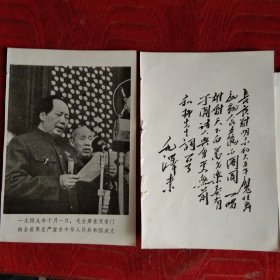 一九四九年十月一日，毛主席在天安门
向全世界庄严宣告中华人民共和国成立
长夜难明赤县天百年魔怪舞
翩跹人民五亿不团圆一唱
雄鸡天下白万方乐奏有
于阗诗人兴会更无前
毛泽东